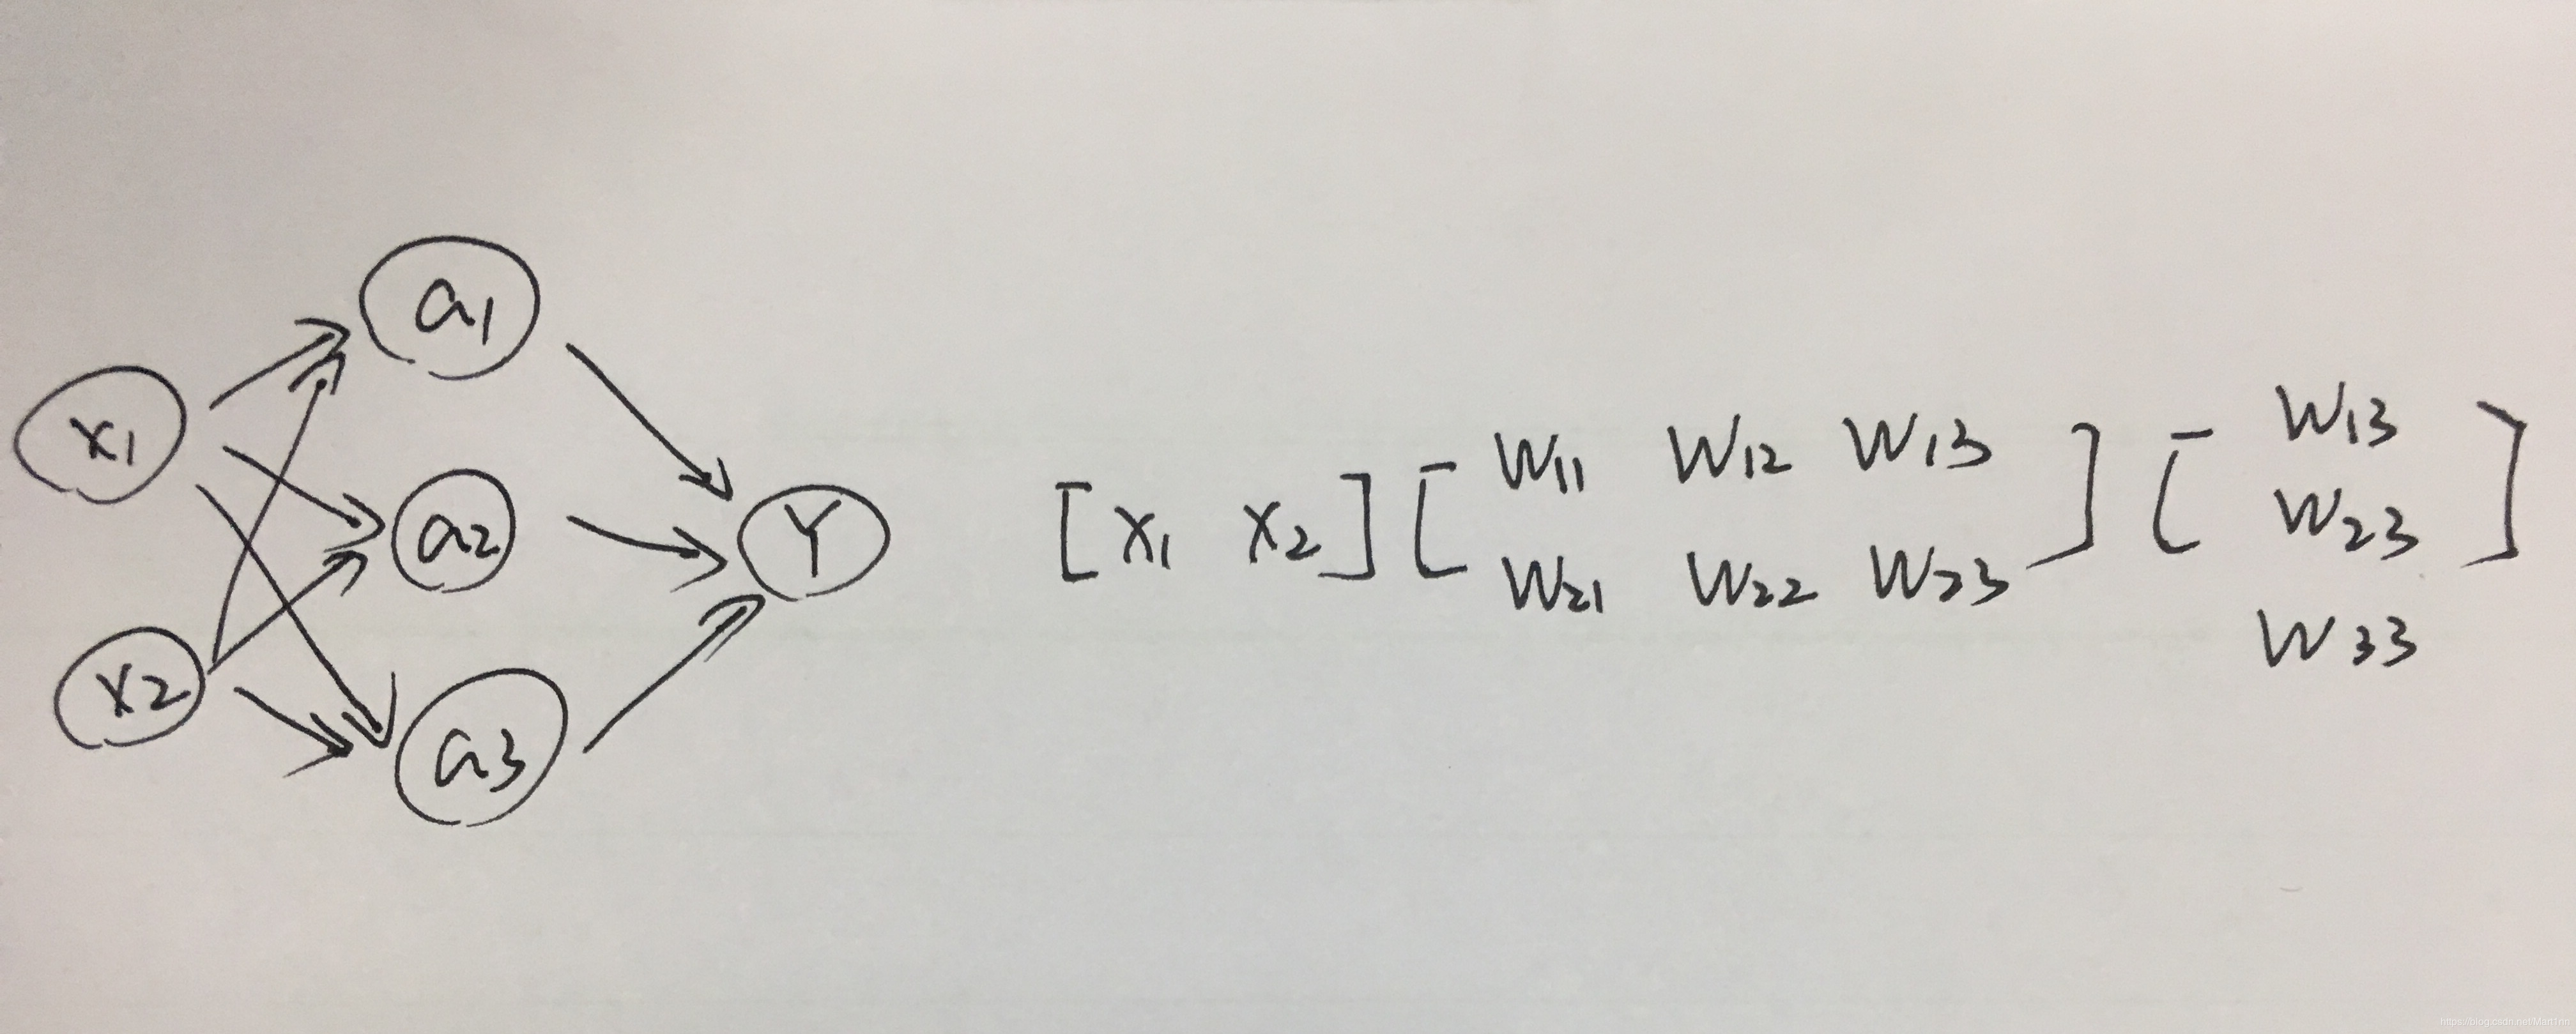 a1
x1
a2
Y
x2
a3
[x1 x2] [w11 w12 w13] [w13]
w21 w22 w23 w23
w33
https://blog.csdn.net/Mart1nn